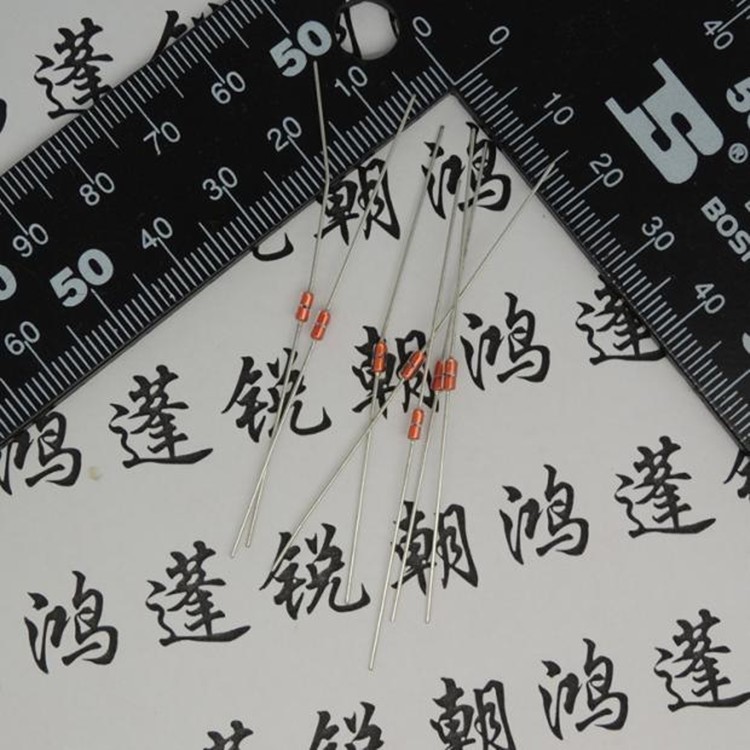 蓬
50 0 0 40
60 10 10
70 20 20
80 30 朝 鸿 30 BOSI
90 40 40
50 50
60 蓬 锐 朝 鸿 蓬
鸿
鸿 蓬 锐 朝 鸿 蓬
蓬 锐 朝 鸿 蓬